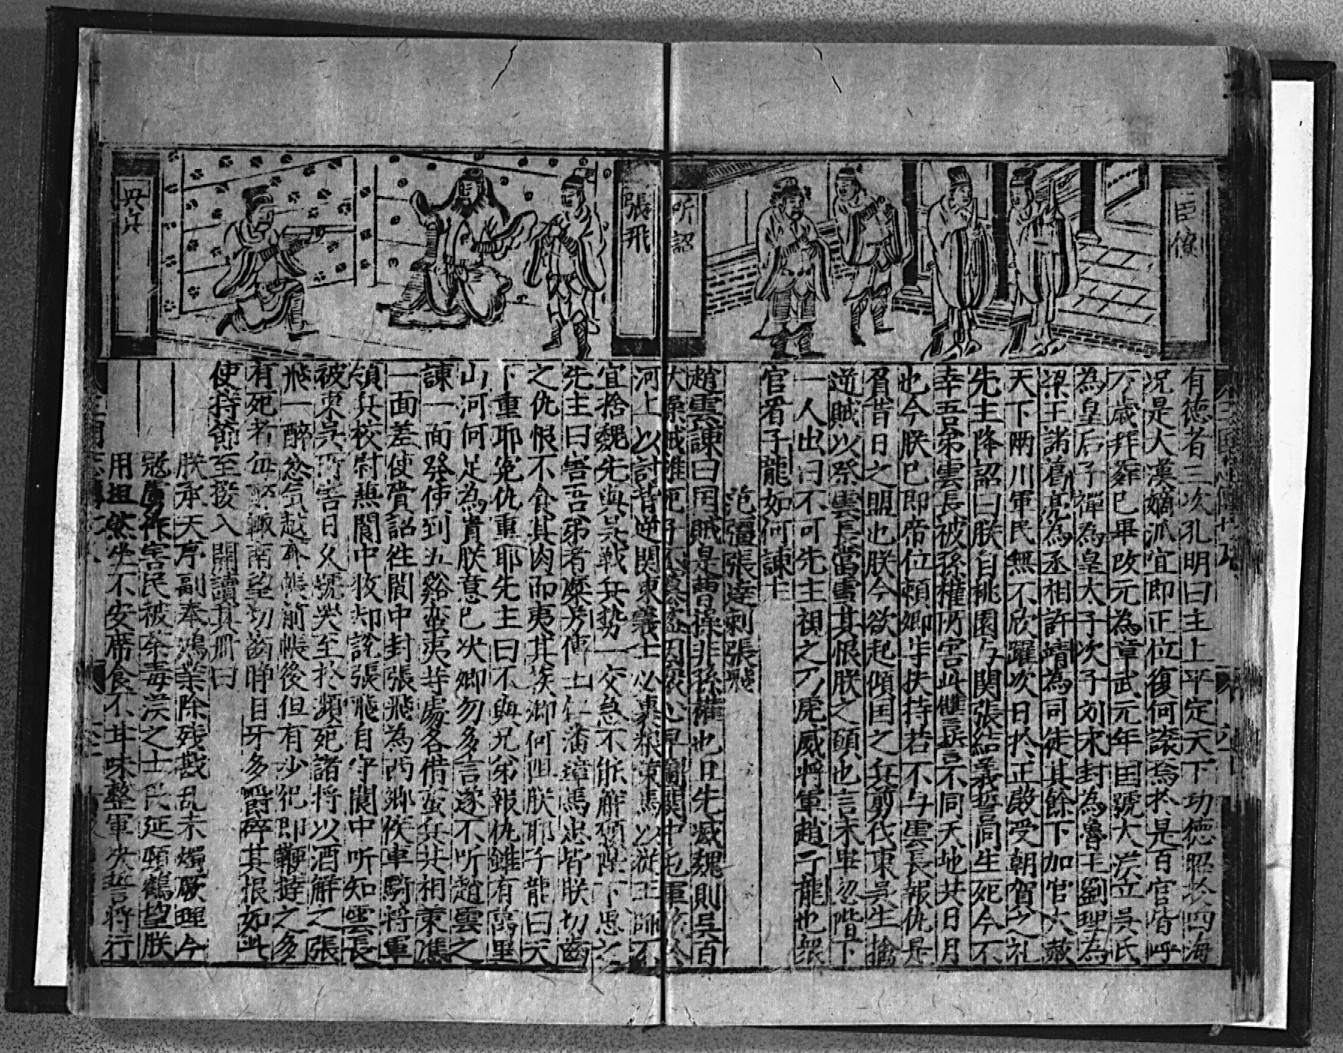 臣僚
听詔
有德者三次孔明曰主上平定天下功德昭於四海
况是大漢嫡派宜即正位復何讓焉於是百官皆呼
万歲拜舞已畢改元為章武元年国號大漢立吳氏
為皇后子禪為皇太子次子刘永封為魯王劉理為
梁王諸葛亮為丞相許靖為司徒其餘下加官大赦
天下兩川軍民無不欣躍次日於正殿受朝賀之礼
先主降詔曰朕自桃園与関張結義誓同生死今不
幸吾弟雲長被孫權所害此讐誓不同天地共日月
也今朕已即帝位賴卿等扶持若不与雲長報仇是
負昔日之盟也朕今欲起傾国之兵剪伐東吳生擒
逆賊以祭雲長當雪其恨朕之願也言未畢忽階下
一人出曰不可先主視之乃虎威將軍趙子龍也衆
官看子龍如何諫主
范彊張達刺張飛
趙雲諫曰国賊是曹操非孫權也且先滅魏則吳自
河上以討普逆関東義士必裹粮策馬以從王師不
宜捨魏先與吳戰兵勢一交急不能解願陛下思之
先主曰害吾弟者糜芳傅士仁潘璋馬忠皆朕切齒
之仇恨不食其肉而夷其族卿何阻朕耶子龍曰天
下重耶冤仇重耶先主曰不與兄弟報仇雖有萬里
山河何足為貴朕意已決卿勿多言遂不听趙雲之
諫一面發使到五谿蛮夷等處各借蛮兵共相策應
一面差使賫詔往閬中封張飛為西鄉侯車騎將軍
領兵校尉兼閬中牧却說張飛自守閬中听知雲長
被東吳所害日久號哭至於頻死諸將以酒解之張
飛一醉忿氣越加帳前帳後但有少犯即鞭撻之多
有死者每飲輒南望切齒睜目牙多嚼碎其恨如此
使持節至 入開讀其冊曰
朕承天序副奉鴻業除残戡乱未燭厥理今
寇虜作害民被荼毒漢之士民延頸鶴望朕
用坦然坐不安席食不甘味整軍 誓將行
張飛